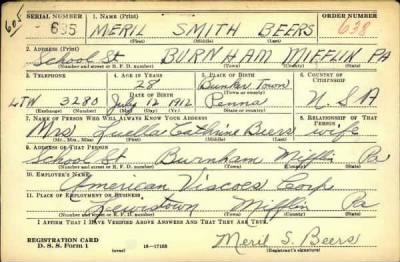 605
SERIAL NUMBER 1. NAME (Print) ORDER NUMBER
635 MERIL SMITH BEERS 638
(First) (Middle) (Last)
2. ADDRESS (Print)
School St BURNHAM MIFFLIN PA
(Number and street or R. F. D. number) (Town) (County) (State)
3. TELEPHONE 4. AGE IN YEARS 5. PLACE OF BIRTH 6. COUNTRY OF CITIZENSHIP
28 Bunker Town
DATE OF BIRTH (Town or county)
LTW 3280 July 12 1912 Penna U.S.A
(Exchange) (Number) (Mo.) (Day) (Yr.) (State or country)
7. NAME OF PERSON WHO WILL ALWAYS KNOW YOUR ADDRESS 8. RELATIONSHIP OF THAT PERSON
Mrs Luella Cathrine Beers wife
(Mr., Mrs., Miss) (First) (Middle) (Last)
9. ADDRESS OF THAT PERSON
School St. Burnham Mifflin Pa
(Number and street or R. F. D. number) (Town) (County) (State)
10. EMPLOYER'S NAME
American Viscose Corp
11. PLACE OF EMPLOYMENT OR BUSINESS
Lewistown Mifflin Pa
(Number and street or R. F. D. number) (Town) (County) (State)
I AFFIRM THAT I HAVE VERIFIED ABOVE ANSWERS AND THAT THEY ARE TRUE.
REGISTRATION CARD
D. S. S. Form 1 (over) 16—17105 Meril S. Beers
(Registrant's signature)